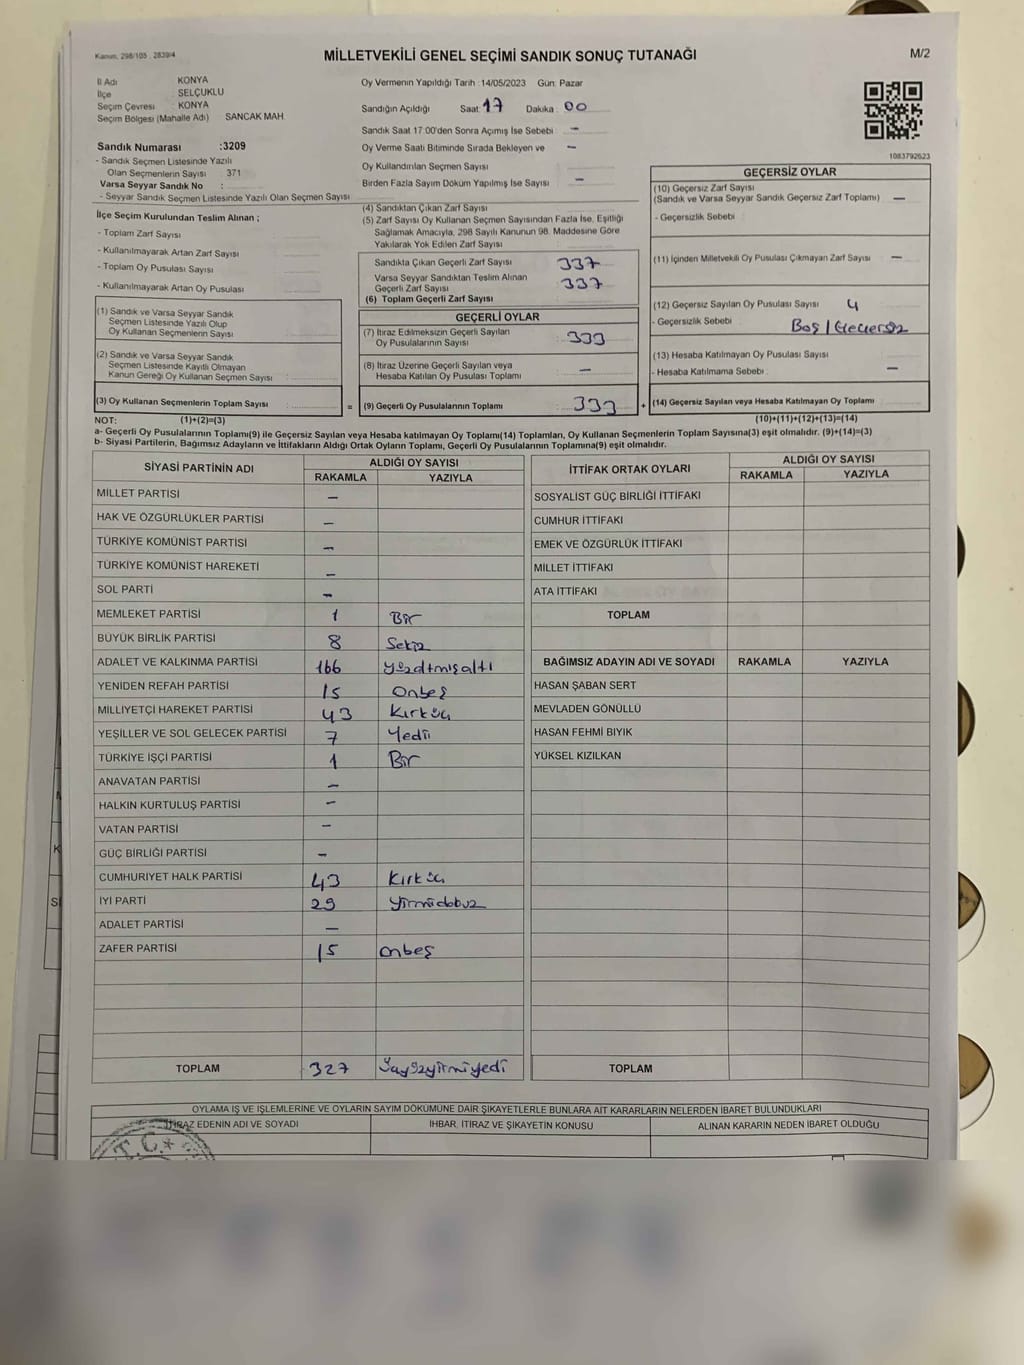 Kanun, 298/105 , 2839/4
MİLLETVEKİLİ GENEL SEÇİMİ SANDIK SONUÇ TUTANAĞI
M/2
İl Adı KONYA
İlçe SELÇUKLU
Seçim Çevresi : KONYA
Seçim Bölgesi (Mahalle Adı) SANCAK MAH
Sandık Numarası :3209
- Sandık Seçmen Listesinde Yazılı
Olan Seçmenlerin Sayısı : 371
Varsa Seyyar Sandık No :
- Seyyar Sandık Seçmen Listesinde Yazılı Olan Seçmen Sayısı
Oy Vermenin Yapıldığı Tarih :14/05/2023 Gün: Pazar
Sandığın Açıldığı Saat: 17 Dakika : 00
Sandık Saat 17:00'den Sonra Açımış İse Sebebi –
Oy Verme Saati Bitiminde Sırada Bekleyen ve –
Oy Kullandırılan Seçmen Sayısı
Birden Fazla Sayım Döküm Yapılmış İse Sayısı –
1083792623
İlçe Seçim Kurulundan Teslim Alınan ;
- Toplam Zarf Sayısı
- Kullanılmayarak Artan Zarf Sayısı
- Toplam Oy Pusulası Sayısı
- Kullanılmayarak Artan Oy Pusulası
(1) Sandık ve Varsa Seyyar Sandık
Seçmen Listesinde Yazılı Olup
Oy Kullanan Seçmenlerin Sayısı
(2) Sandık ve Varsa Seyyar Sandık
Seçmen Listesinde Kayıtlı Olmayan
Kanun Gereği Oy Kullanan Seçmen Sayısı
(3) Oy Kullanan Seçmenlerin Toplam Sayısı :
=
(4) Sandıktan Çıkan Zarf Sayısı
(5) Zarf Sayısı Oy Kullanan Seçmen Sayısından Fazla İse, Eşitliği
Sağlamak Amacıyla, 298 Sayılı Kanunun 98. Maddesine Göre
Yakılarak Yok Edilen Zarf Sayısı
Sandıkta Çıkan Geçerli Zarf Sayısı 337
Varsa Seyyar Sandıktan Teslim Alınan
Geçerli Zarf Sayısı 337
(6) Toplam Geçerli Zarf Sayısı
GEÇERLİ OYLAR
(7) İtiraz Edilmeksizin Geçerli Sayılan
Oy Pusulalarının Sayısı : 333
(8) İtiraz Üzerine Geçerli Sayılan veya
Hesaba Katılan Oy Pusulası Toplamı –
(9) Geçerli Oy Pusulalarının Toplamı : 333
+
GEÇERSİZ OYLAR
(10) Geçersiz Zarf Sayısı
(Sandık ve Varsa Seyyar Sandık Geçersiz Zarf Toplamı) –
- Geçersizlik Sebebi
(11) İçinden Milletvekili Oy Pusulası Çıkmayan Zarf Sayısı –
(12) Geçersiz Sayılan Oy Pusulası Sayısı 4
- Geçersizlik Sebebi : Boş / Geçersiz
(13) Hesaba Katılmayan Oy Pusulası Sayısı
- Hesaba Katılmama Sebebi : –
(14) Geçersiz Sayılan veya Hesaba Katılmayan Oy Toplamı
NOT: (1)+(2)=(3) (10)+(11)+(12)+(13)=(14)
a- Geçerli Oy Pusulalarının Toplamı(9) ile Geçersiz Sayılan veya Hesaba katılmayan Oy Toplamı(14) Toplamları, Oy Kullanan Seçmenlerin Toplam Sayısına(3) eşit olmalıdır. (9)+(14)=(3)
b- Siyasi Partilerin, Bağımsız Adayların ve İttifakların Aldığı Ortak Oyların Toplamı, Geçerli Oy Pusulalarının Toplamına(9) eşit olmalıdır.
SİYASİ PARTİNİN ADI ALDIĞI OY SAYISI
RAKAMLA YAZIYLA
MİLLET PARTİSİ –
HAK VE ÖZGÜRLÜKLER PARTİSİ –
TÜRKİYE KOMÜNİST PARTİSİ –
TÜRKİYE KOMÜNİST HAREKETİ –
SOL PARTİ –
MEMLEKET PARTİSİ 1 Bir
BÜYÜK BİRLİK PARTİSİ 8 Sekiz
ADALET VE KALKINMA PARTİSİ 166 yüzatmışaltı
YENİDEN REFAH PARTİSİ 15 Onbeş
MİLLİYETÇİ HAREKET PARTİSİ 43 Kırküç
YEŞİLLER VE SOL GELECEK PARTİSİ 7 Yedi
TÜRKİYE İŞÇİ PARTİSİ 1 Bir
ANAVATAN PARTİSİ –
HALKIN KURTULUŞ PARTİSİ –
VATAN PARTİSİ –
GÜÇ BİRLİĞİ PARTİSİ –
CUMHURİYET HALK PARTİSİ 43 Kırküç
İYİ PARTİ 29 Yirmidokuz
ADALET PARTİSİ –
ZAFER PARTİSİ 15 onbeş
TOPLAM 327
İTTİFAK ORTAK OYLARI ALDIĞI OY SAYISI
RAKAMLA YAZIYLA
SOSYALİST GÜÇ BİRLİĞİ İTTİFAKI
CUMHUR İTTİFAKI
EMEK VE ÖZGÜRLÜK İTTİFAKI
MİLLET İTTİFAKI
ATA İTTİFAKI
TOPLAM
BAĞIMSIZ ADAYIN ADI VE SOYADI RAKAMLA YAZIYLA
HASAN ŞABAN SERT
MEVLADEN GÖNÜLLÜ
HASAN FEHMİ BIYIK
YÜKSEL KIZILKAN
TOPLAM
OYLAMA İŞ VE İŞLEMLERİNE VE OYLARIN SAYIM DÖKÜMÜNE DAİR ŞİKAYETLERLE BUNLARA AİT KARARLARIN NELERDEN İBARET BULUNDUKLARI
İTİRAZ EDENİN ADI VE SOYADI İHBAR, İTİRAZ VE ŞİKAYETİN KONUSU ALINAN KARARIN NEDEN İBARET OLDUĞU
T.C.